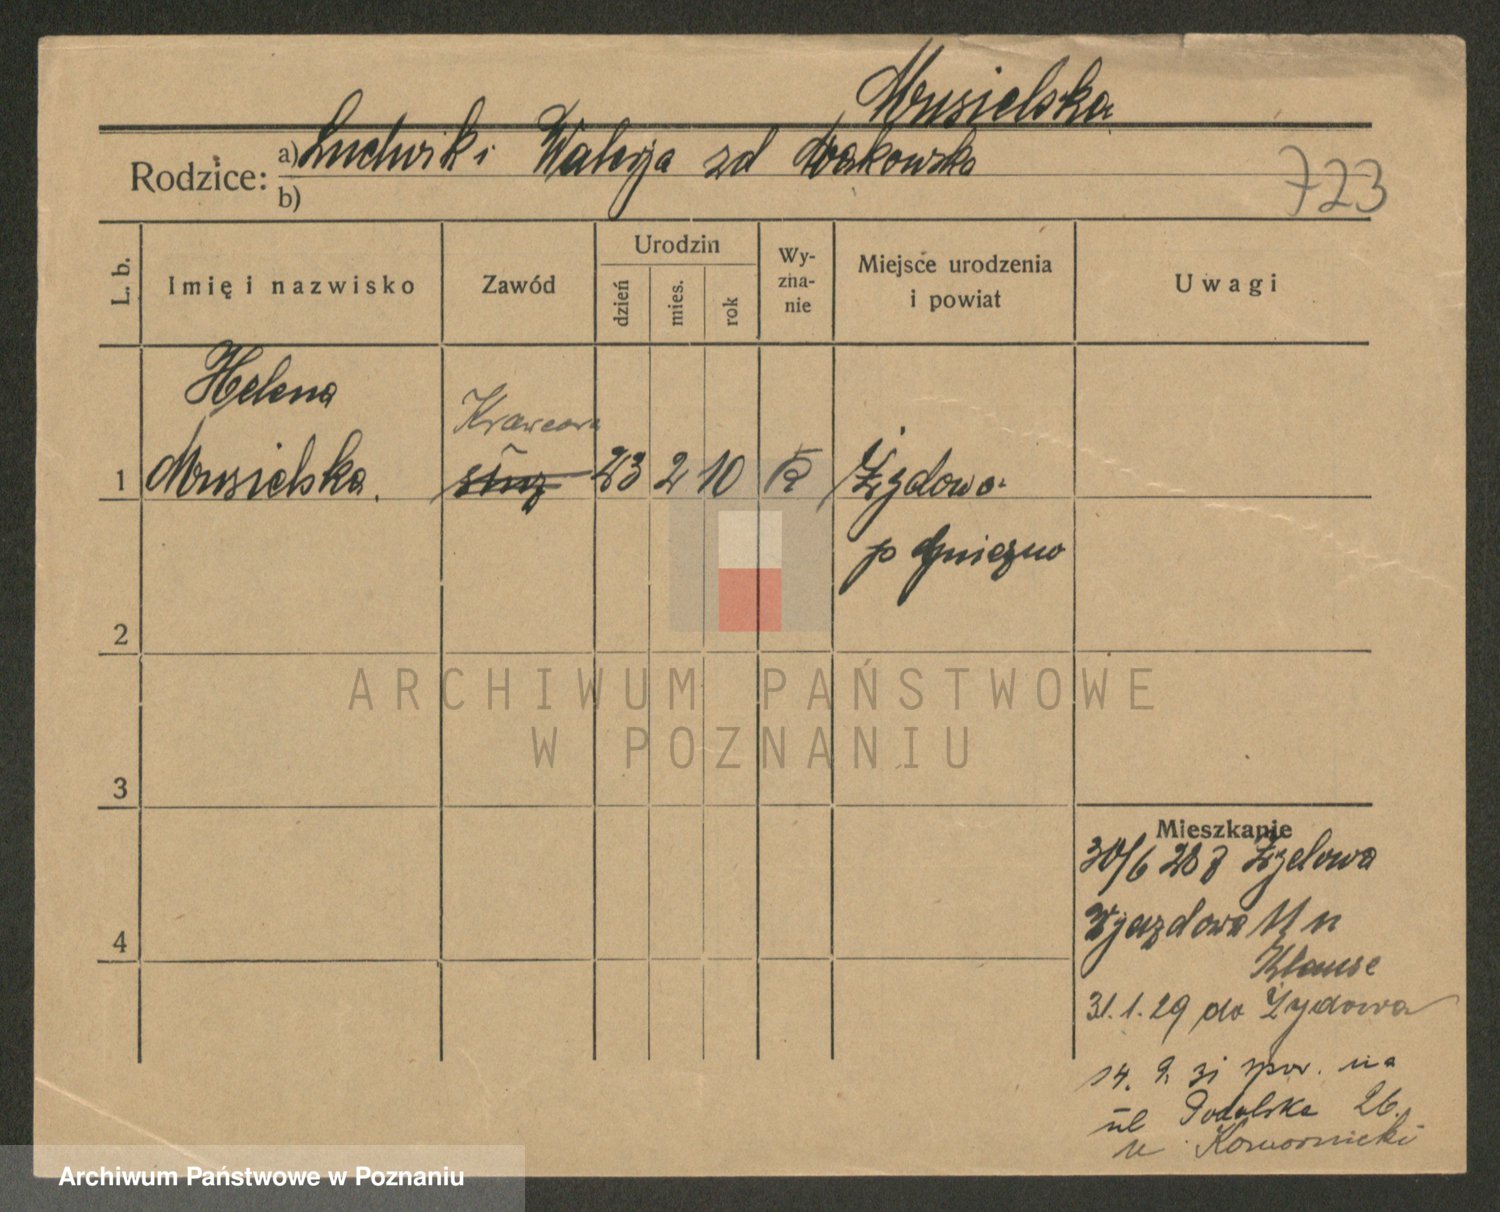 Musielska
Rodzice: a) Ludwik i Walerja zd Łakowska
b)
723
L. b.
Imię i nazwisko
Zawód
Urodzin
dzień
mies.
rok
Wy-
zna-
nie
Miejsce urodzenia
i powiat
Uwagi
Helena
Krawcowa
1 Musielska. służ 23 2 10 R Żydowo
p Gniezno
2
3
4
Mieszkanie
30/6 28 z Żydowa
Wjazdowa 11 u
Klause
31.1.29 do Żydowa
14. 2 31 spow. na
ul Podolska 26.
u Komornicki
ARCHIWUM PAŃSTWOWE
W POZNANIU
Archiwum Państwowe w Poznaniu